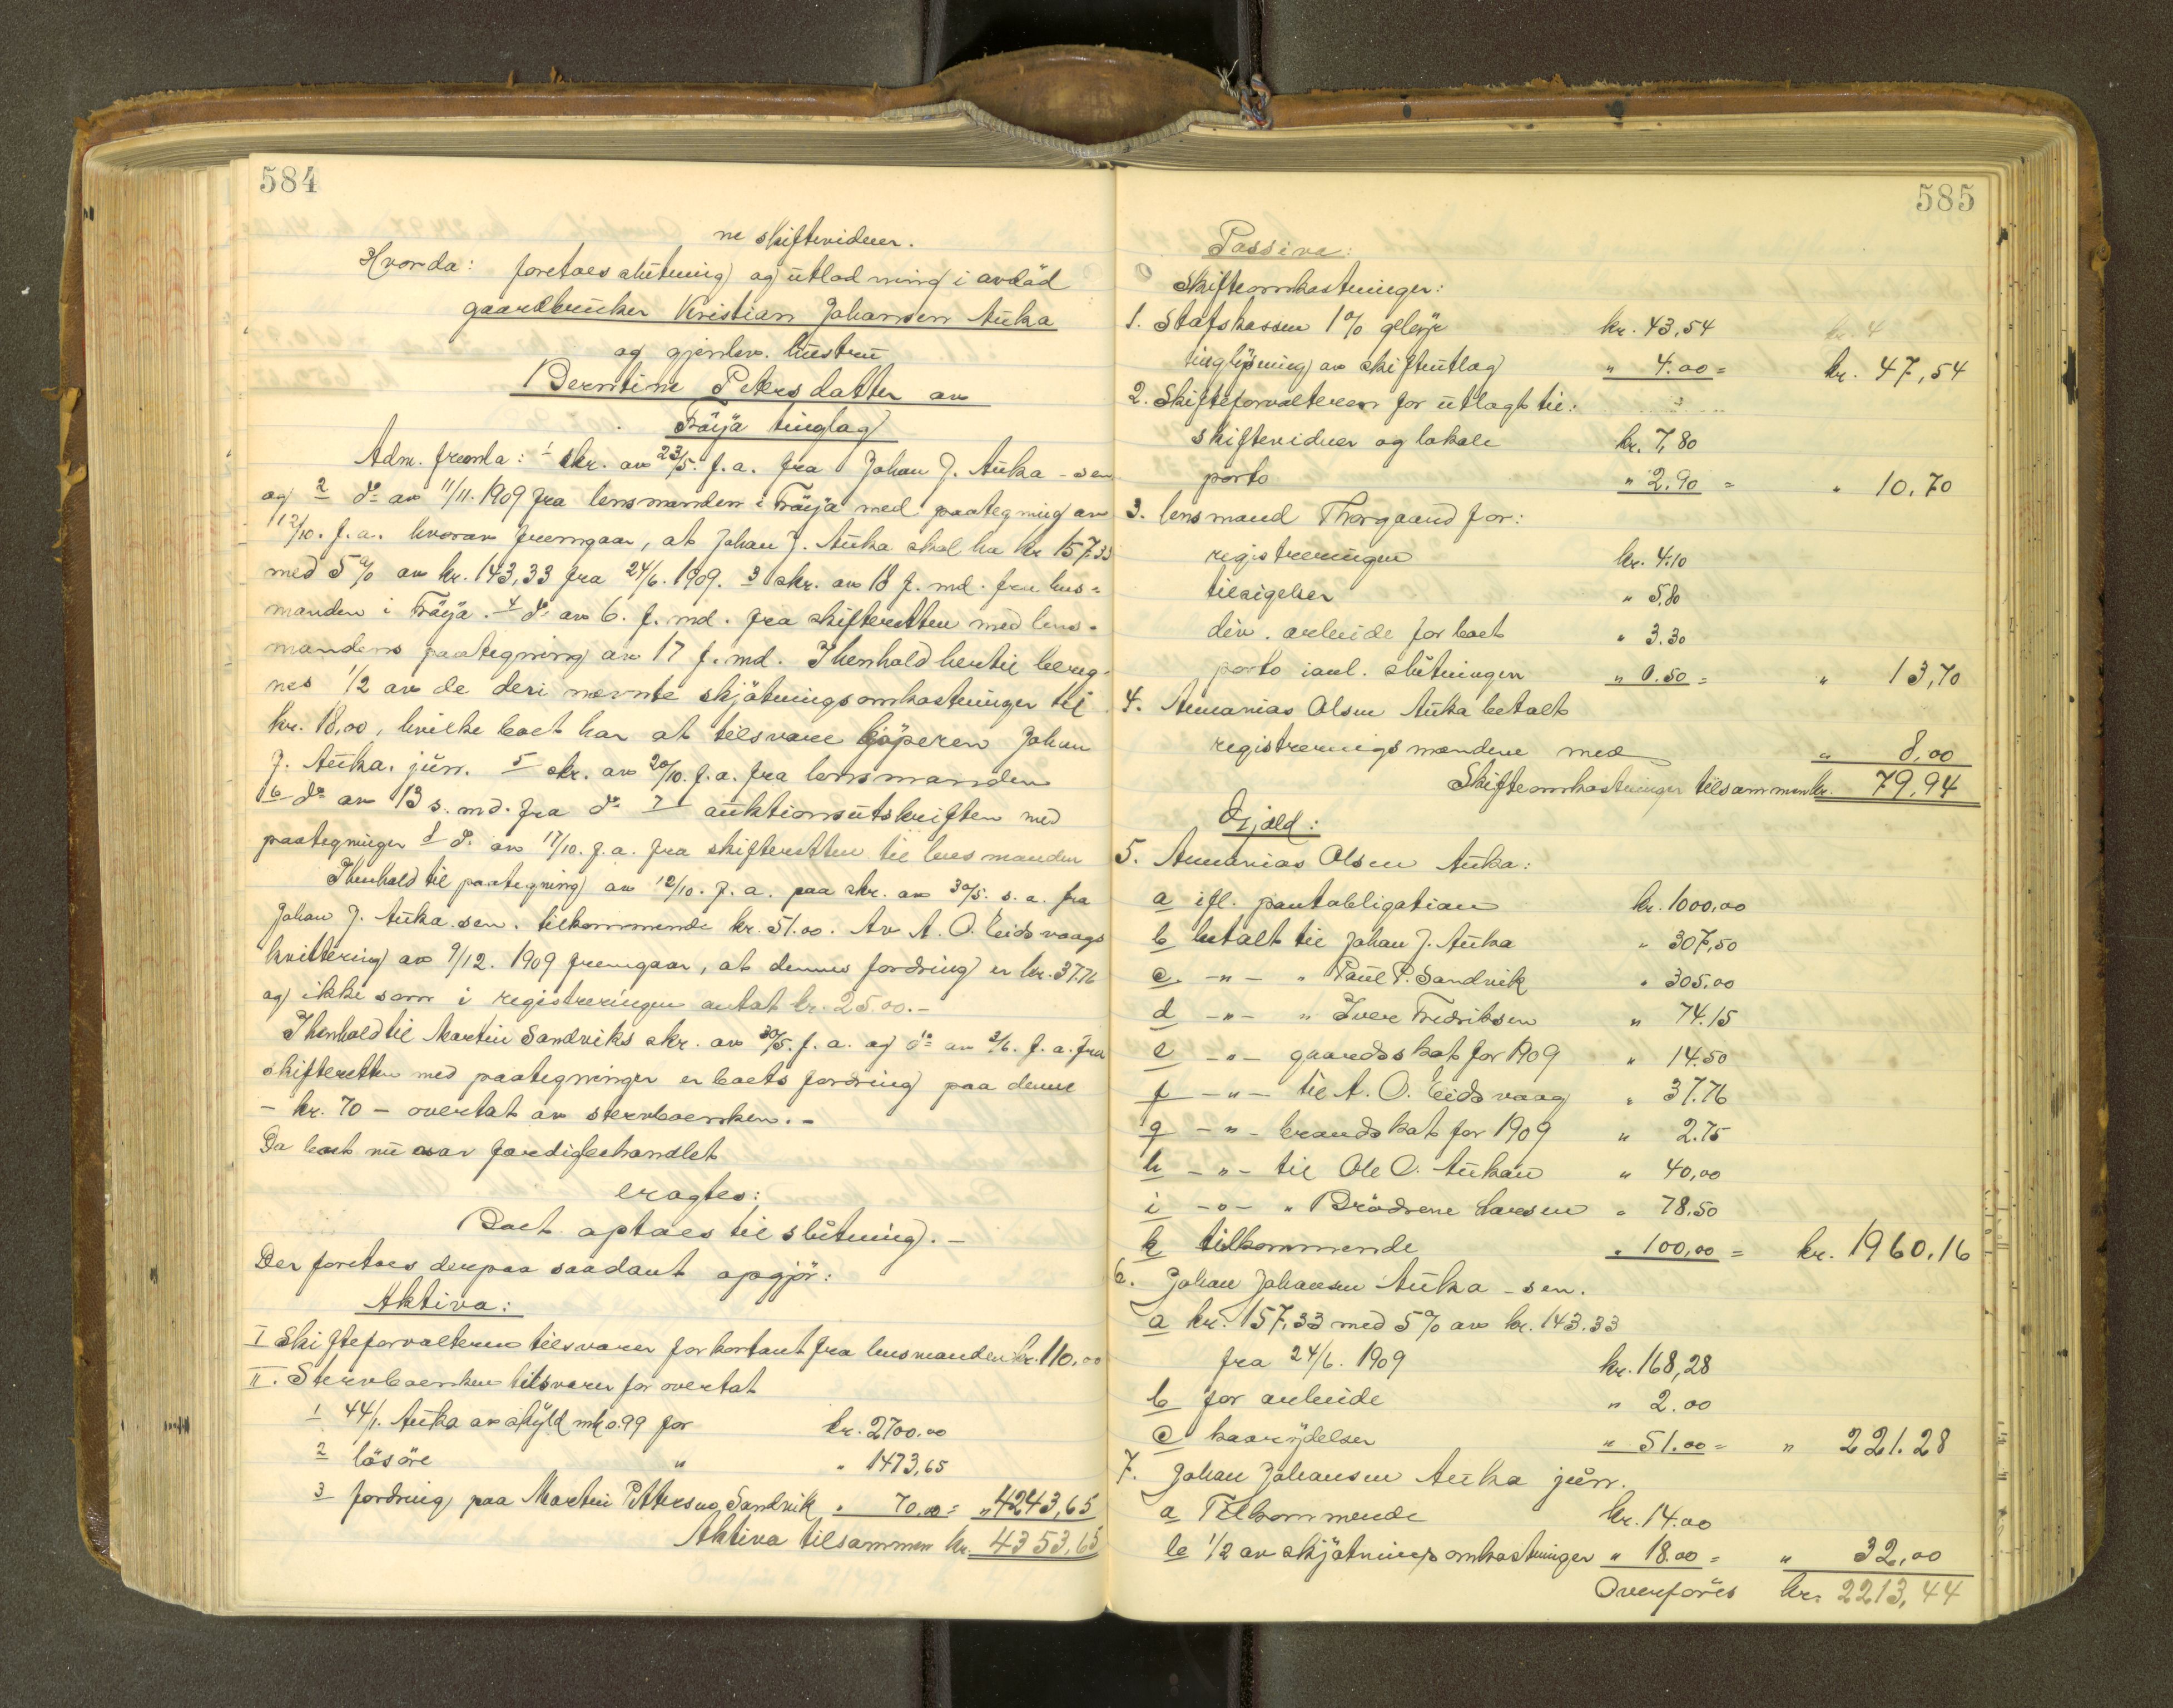 584
ne skiftevidner.
Hvorda: foretoes slutning og utlodning i avdöd
gaardbruker Kristian Johansen Auka
og gjenlev. hustru
Berntine Petersdatter av
Fröya tinglag
Adm. fremla: 1 skr. av 23/5. f.a. fra Johan J. Auka - sen
og 2 do av 11/11. 1909 fra lensmanden i Fröya med paategning av
12/10. f.a. hvorav fremgaar, at Johan J. Auka skal ha kr 157.33
med 5% av kr. 143,33 fra 24/6. 1909. 3 skr. av 18 f. md. fra lens=
manden i Fröya. 4 do av 6. f. md. fra skifteretten med lens-
mandens paategning av 17 f. md. I henhold hertil bereg-
nes 1/2 av de deri nævnte skjötningsomkostninger til
kr. 18,00, hvilke boet har at tilsvare kjöperen Johan
J. Auka. jun. 5 skr. av 20/10. f.a. fra lensmanden
6 do av 13 s. md. fra do 7 auktionsutskriften med
paategninger 8 do av 17/10. f.a. fra skifteretten til lensmanden
I henhold til paategning av 12/10. f.a. paa skr. av 30/5. s.a. fra
Johan J. Auka sen. tilkommende kr. 51.00. Av A. O. Eidsvaags
kvittering av 9/12. 1909 fremgaar, at dennes fordring er kr. 37.76
og ikke som i registreringen antat kr. 25.00.-
I henhold til Martin Sandviks skr. av 30/5. f.a. og do av 2/6. f.a. fra
skifteretten med paategninger er boets fordring paa denne
- kr. 70 - overtat av stervboenken.-
Da boet nu var færdigbehandlet
eragtes:
Boet optaes til slutning.-
Der foretoes derpaa saadant opgjör:
Aktiva:
I Skifteforvalteren tilsvarer for kontant fra lensmanden kr. 110.00
II. Stervboenken tilsvarer for overtat
1 44/1. Auka av skyld mk 0.99 for kr. 2700.00
2 lösöre " " 1473,65
3 fordring paa Martin Pettersen Sandvik " 70.00 = " 4243,65
Aktiva tilsammen kr. 4353,65
585
Passiva:
Skifteomkostninger:
1. Statskassen 1% gebyr kr. 43,54
tinglysning av skifteutlæg " 4.00 = kr. 47,54
2. Skifteforvalteren for utlagt til:
skiftevidner og lokale kr. 7,80
porto " 2.90 = " 10.70
3. lensmand Thorgaard for:
registreringen kr. 4.10
tilsigelser " 5,80
div. arbeide for boet " 3.30
porto ianl. slutningen " 0.50 = " 13,70
4. Annanias Olsen Auka betalt
registreringsmændene med " 8,00
Skifteomkostninger tilsammen kr. 79,94
Gjæld:
5. Annanias Olsen Auka:
a ifl. pantobligation kr. 1000,00
b betalt til Johan J. Auka " 307,50
c -"- " Paul P. Sandvik " 305.00
d -"- " Iver Fredriksen " 74.15
e -"- gaardsskat for 1909 " 14.50
f -"- til A. O. Eidsvaag " 37.76
g -"- brandskat for 1909 " 2.75
h -"- til Ole O. Aukan " 40,00
i -"- " Brödrene Larsen " 78.50
k tilkommende " 100,00 = kr. 1960.16
6. Johan Johansen Auka - sen.
a kr. 157,33 med 5% av kr. 143.33
fra 24/6. 1909 kr. 168,28
b for arbeide " 2.00
c kaarydelser " 51.00 = " 221.28
7. Johan Johansen Auka jun.
a Tilkommende kr. 14.00
b 1/2 av skjötningsomkostninger " 18.00 = " 32,00
Overföres kr. 2213,44